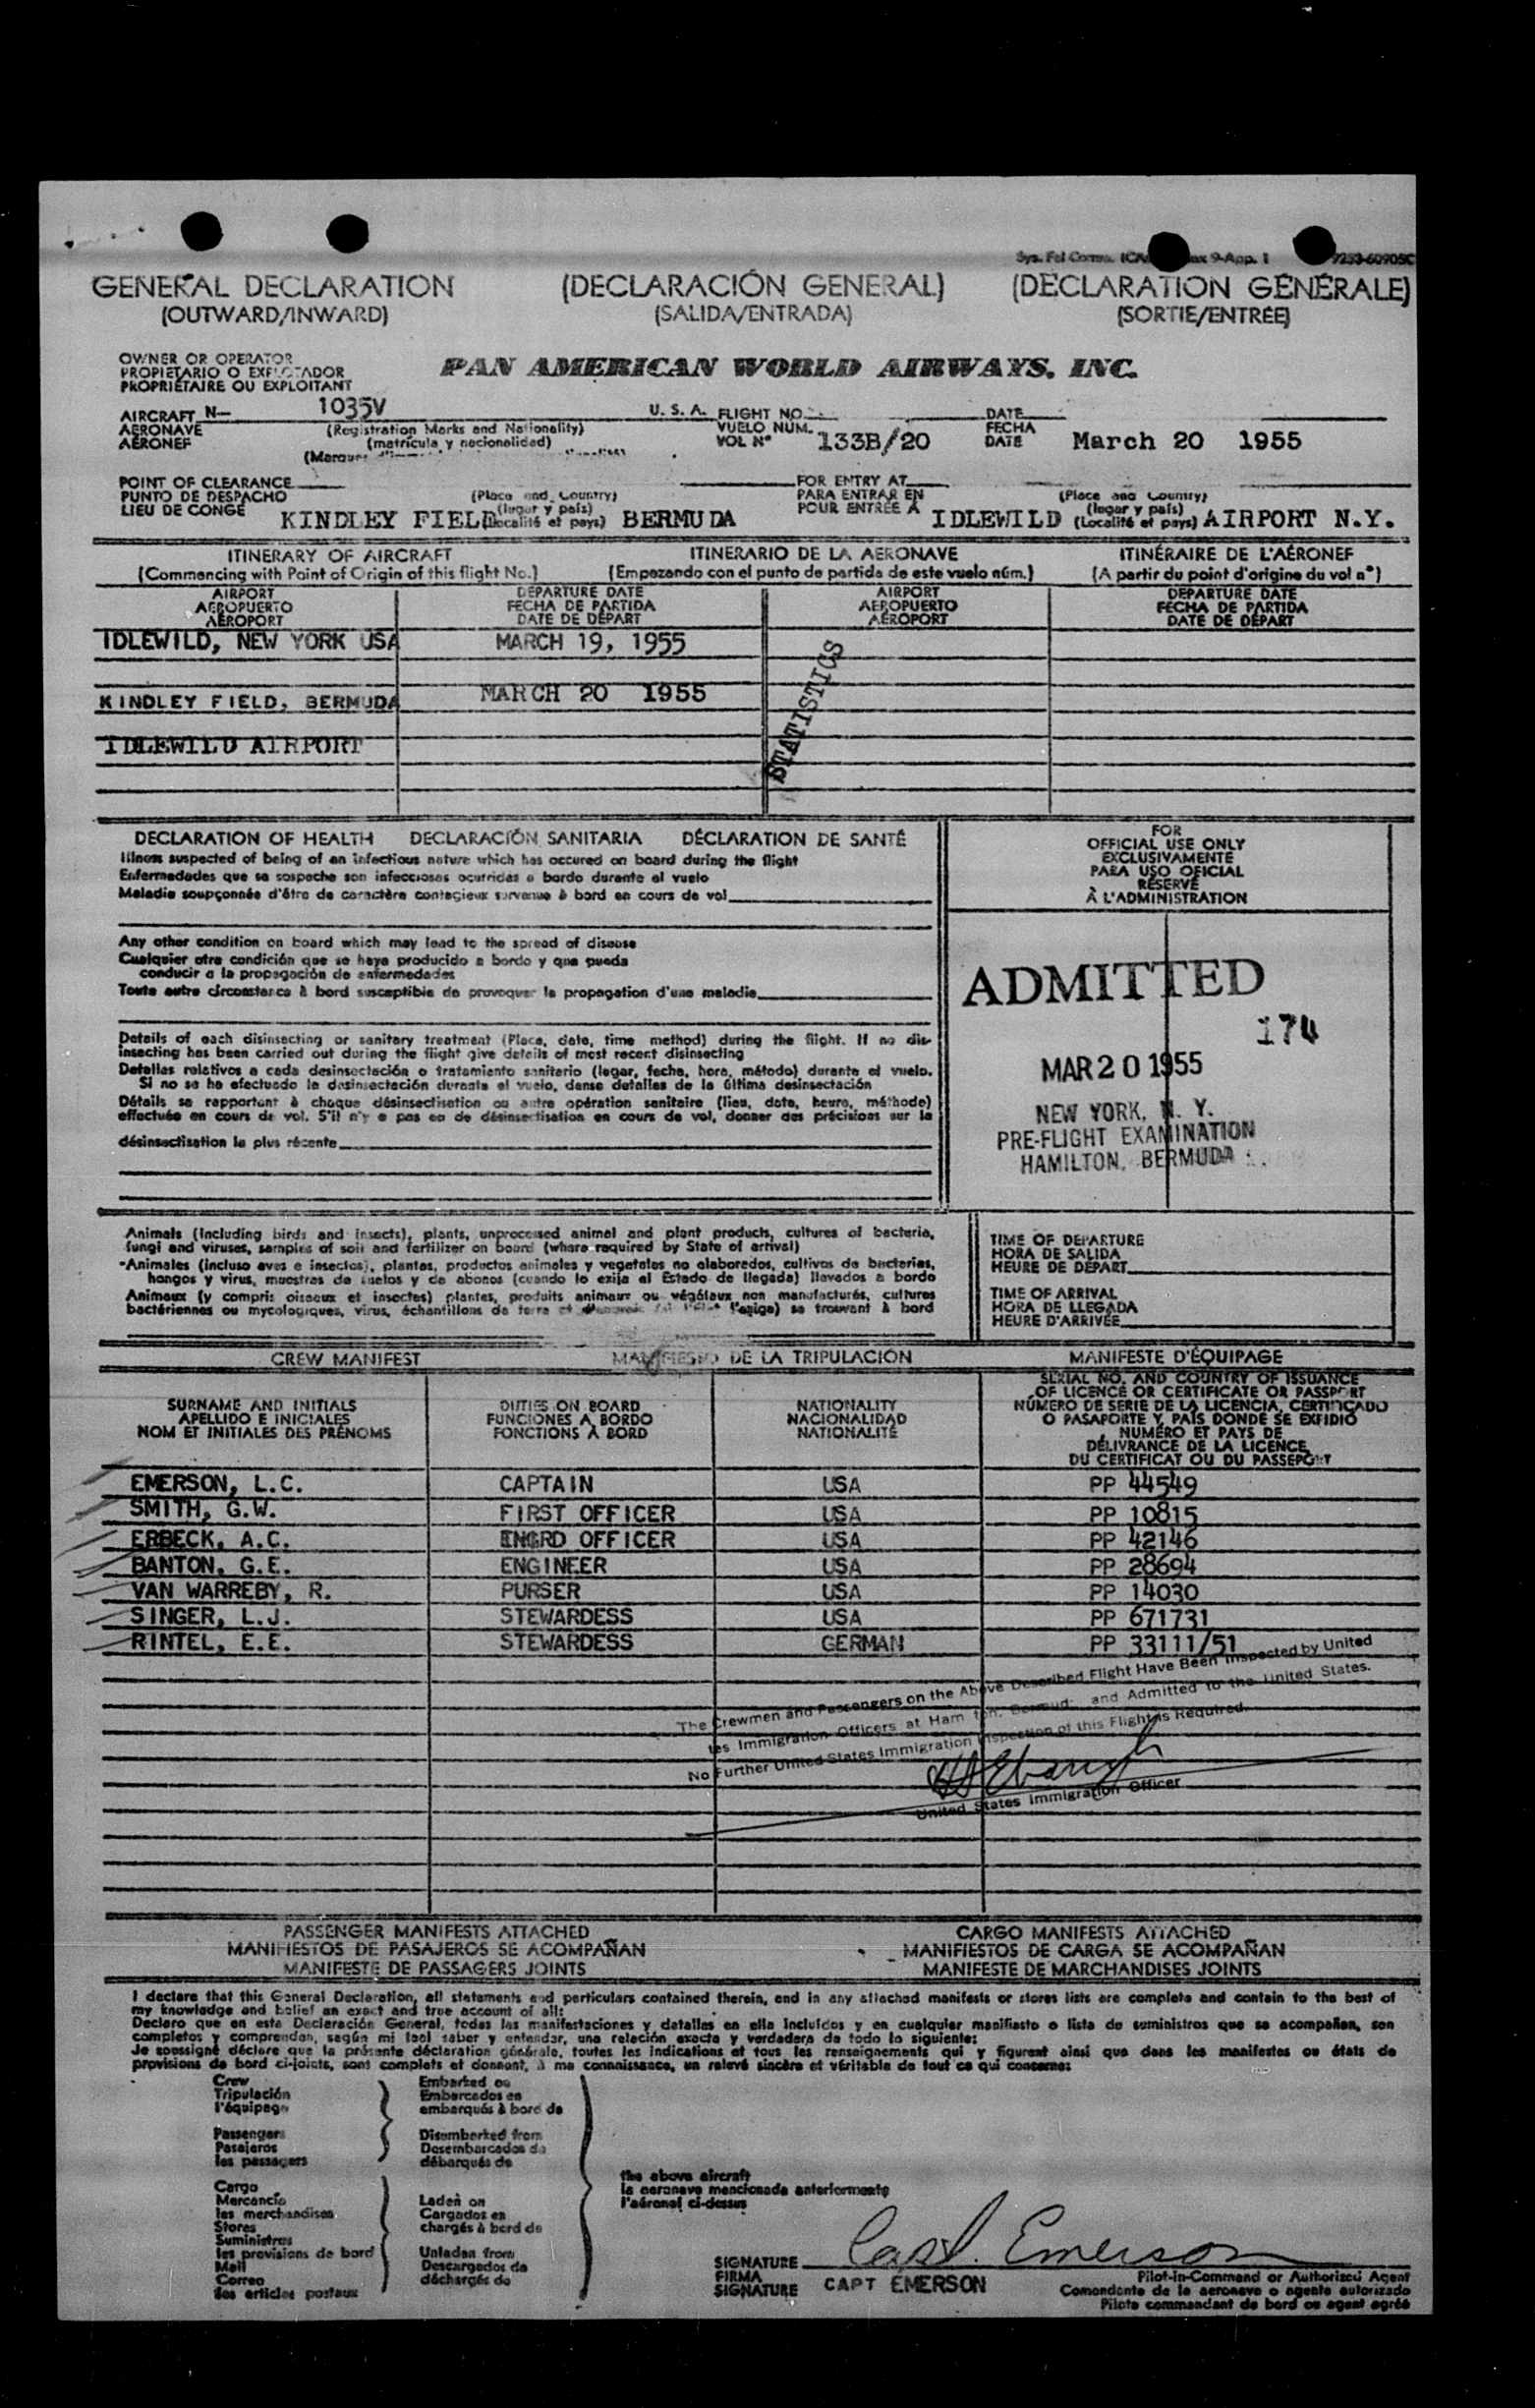 Sys. Fol Corres. ICA ex 9-App. 1 9253-60905C
GENERAL DECLARATION (DECLARACIÓN GENERAL) (DÉCLARATION GÉNÉRALE)
(OUTWARD/INWARD) (SALIDA/ENTRADA) (SORTIE/ENTRÉE)
OWNER OR OPERATOR
PROPIETARIO O EXPLOTADOR
PROPRIÉTAIRE OU EXPLOITANT
PAN AMERICAN WORLD AIRWAYS, INC.
AIRCRAFT N— 1035V U. S. A. FLIGHT NO. DATE
AERONAVE (Registration Marks and Nationality) VUELO NÚM. FECHA
AÉRONEF (matrícula y nacionalidad) VOL Nº 133B/20 DATE March 20 1955
(Marques
POINT OF CLEARANCE FOR ENTRY AT
PUNTO DE DESPACHO (Place and Country) PARA ENTRAR EN (Place and Country)
LIEU DE CONGÉ (lugar y país) POUR ENTRÉE À (lugar y país)
KINDLEY FIELD (Localité et pays) BERMUDA IDLEWILD (Localité et pays) AIRPORT N.Y.
ITINERARY OF AIRCRAFT ITINERARIO DE LA AERONAVE ITINÉRAIRE DE L'AÉRONEF
(Commencing with Point of Origin of this flight No.) (Empezando con el punto de partida de este vuelo núm.) (A partir du point d'origine du vol nº)
AIRPORT DEPARTURE DATE AIRPORT DEPARTURE DATE
AEROPUERTO FECHA DE PARTIDA AEROPUERTO FECHA DE PARTIDA
AÉROPORT DATE DE DÉPART AÉROPORT DATE DE DÉPART
IDLEWILD, NEW YORK USA MARCH 19, 1955
KINDLEY FIELD, BERMUDA MARCH 20 1955
IDLEWILD AIRPORT
STATISTICS
DECLARATION OF HEALTH DECLARACIÓN SANITARIA DÉCLARATION DE SANTÉ
Illness suspected of being of an infectious nature which has occured on board during the flight
Enfermedades que se sospeche son infecciosas ocurridas a bordo durante el vuelo
Maladie soupçonnée d'être de caractère contagieux survenue à bord en cours de vol
Any other condition on board which may lead to the spread of disease
Cualquier otra condición que se haya producido a bordo y que pueda
conducir a la propagación de enfermedades
Toute autre circonstance à bord susceptible de provoquer la propagation d'une maladie
Details of each disinsecting or sanitary treatment (Place, date, time method) during the flight. If no dis-
insecting has been carried out during the flight give details of most recent disinsecting
Detalles relativos a cada desinsectación o tratamiento sanitario (lugar, fecha, hora, método) durante el vuelo.
Si no se ha efectuado la desinsectación durante el vuelo, danse detalles de la última desinsectación
Détails se rapportant à chaque désinsectisation ou autre opération sanitaire (lieu, date, heure, méthode)
effectuée en cours de vol. S'il n'y a pas eu de désinsectisation en cours de vol, donner des précisions sur la
désinsectisation la plus récente
FOR
OFFICIAL USE ONLY
EXCLUSIVAMENTE
PARA USO OFICIAL
RÉSERVÉ
À L'ADMINISTRATION
ADMITTED
174
MAR 20 1955
NEW YORK, N. Y.
PRE-FLIGHT EXAMINATION
HAMILTON, BERMUDA
Animals (including birds and insects), plants, unprocessed animal and plant products, cultures of bacteria,
fungi and viruses, samples of soil and fertilizer on board (where required by State of arrival)
Animales (incluso aves e insectos), plantas, productos animales y vegetales no elaborados, cultivos de bacterias,
hongos y virus, muestras de suelos y de abonos (cuando lo exija el Estado de llegada) llevados a bordo
Animaux (y compris oiseaux et insectes) plantes, produits animaux ou végétaux non manufacturés, cultures
bactériennes ou mycologiques, virus, échantillons de terre et l'exige) se trouvant à bord
TIME OF DEPARTURE
HORA DE SALIDA
HEURE DE DÉPART
TIME OF ARRIVAL
HORA DE LLEGADA
HEURE D'ARRIVÉE
CREW MANIFEST MANIFIESTO DE LA TRIPULACIÓN MANIFESTE D'ÉQUIPAGE
SURNAME AND INITIALS
APELLIDO E INICIALES
NOM ET INITIALES DES PRÉNOMS
DUTIES ON BOARD
FUNCIONES A BORDO
FONCTIONS À BORD
NATIONALITY
NACIONALIDAD
NATIONALITÉ
SERIAL NO. AND COUNTRY OF ISSUANCE
OF LICENCE OR CERTIFICATE OR PASSPORT
NÚMERO DE SERIE DE LA LICENCIA, CERTIFICADO
O PASAPORTE Y PAÍS DONDE SE EXPIDIÓ
NUMÉRO ET PAYS DE
DÉLIVRANCE DE LA LICENCE,
DU CERTIFICAT OU DU PASSEPORT
EMERSON, L.C. CAPTAIN USA PP 44549
SMITH, G.W. FIRST OFFICER USA PP 10815
ERBECK, A.C. ENGRD OFFICER USA PP 42146
BANTON, G.E. ENGINEER USA PP 28694
VAN WARREBY, R. PURSER USA PP 14030
SINGER, L.J. STEWARDESS USA PP 671731
RINTEL, E.E. STEWARDESS GERMAN PP 33111/51
The Crewmen and Passengers on the Above Described Flight Have Been Inspected by United
tes Immigration Officers at Ham ton, Bermuda and Admitted to the United States.
No Further United States Immigration Inspection of this Flight is Required.
United States Immigration Officer
PASSENGER MANIFESTS ATTACHED CARGO MANIFESTS ATTACHED
MANIFIESTOS DE PASAJEROS SE ACOMPAÑAN MANIFIESTOS DE CARGA SE ACOMPAÑAN
MANIFESTE DE PASSAGERS JOINTS MANIFESTE DE MARCHANDISES JOINTS
I declare that this General Declaration, all statements and particulars contained therein, and in any attached manifests or stores lists are complete and contain to the best of
my knowledge and belief an exact and true account of all:
Declaro que en esta Declaración General, todas las manifestaciones y detalles en ella incluídos y en cualquier manifiesto o lista de suministros que se acompañen, son
completos y comprenden, según mi leal saber y entender, una relación exacta y verdadera de todo lo siguiente:
Je soussigné déclare que la présente déclaration générale, toutes les indications et tous les renseignements qui y figurent ainsi que dans les manifestes ou états de
provisions de bord ci-joints, sont complets et donnent, à ma connaissance, un relevé sincère et véritable de tout ce qui concerne:
Crew
Tripulación
l'équipage
Passengers
Pasajeros
les passagers
Embarked on
Embarcados en
embarqués à bord de
Disembarked from
Desembarcados de
débarqués de
Cargo
Mercancía
les marchandises
Stores
Suministros
les provisions de bord
Mail
Correo
les articles postaux
Laden on
Cargados en
chargés à bord de
Unladen from
Descargados de
déchargés de
the above aircraft
la aeronave mencionada anteriormente
l'aéronef ci-dessus
SIGNATURE Capt. Emerson
FIRMA
SIGNATURE CAPT EMERSON
Pilot-in-Command or Authorized Agent
Comandante de la aeronave o agente autorizado
Pilote commandant de bord ou agent agréé